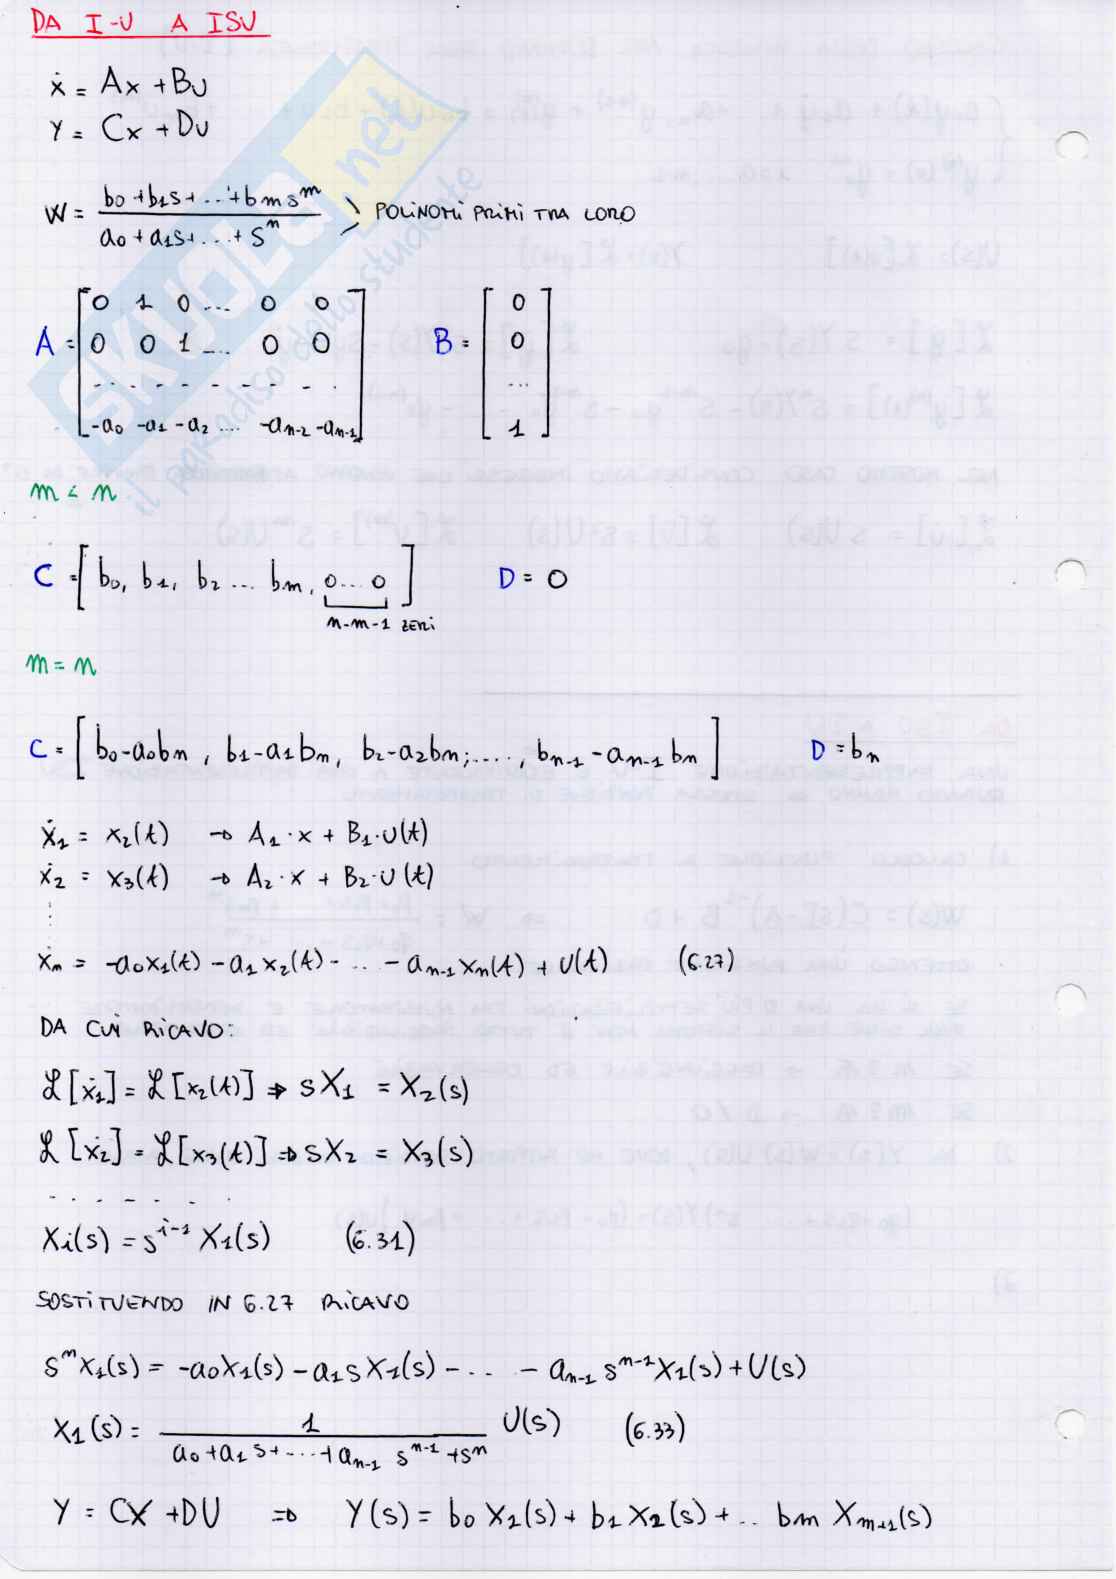 DA I-U A ISU
ẋ = Ax + BU
Y = Cx + DU
W = (b0 + b1s + ... + bm s^m) / (a0 + a1s + ... + s^n) > POLINOMI PRIMI TRA LORO
A = [ 0 1 0 ... 0 0 B = [ 0
0 0 1 ... 0 0 0
. . . . . . . . . ...
-a0 -a1 -a2 .... -an-2 -an-1 ] 1 ]
m < n
C = [ b0, b1, b2 ... bm, 0...0 ] D = 0
n-m-1 ZERI
m = n
C = [ b0-a0bn, b1-a1bn, b2-a2bn;...., bn-1-an-1bn ] D = bn
ẋ1 = x2(t) → A1·x + B1·U(t)
ẋ2 = x3(t) → A2·x + B2·U(t)
⋮
ẋn = -a0x1(t) - a1x2(t) - ... - an-1xn(t) + U(t) (6.27)
DA CUI RICAVO:
ℒ[ẋ1] = ℒ[x2(t)] ⇒ sX1 = X2(s)
ℒ[ẋ2] = ℒ[x3(t)] ⇒ sX2 = X3(s)
. . . . . . .
Xi(s) = s^i-1 X1(s) (6.31)
SOSTITUENDO IN 6.27 RICAVO
s^n X1(s) = -a0X1(s) - a1sX1(s) - ... - an-1 s^n-1 X1(s) + U(s)
X1(s) = 1 / (a0 + a1s + ... + an-1 s^n-1 + s^n) U(s) (6.33)
Y = CX + DU ⇒ Y(s) = b0 X1(s) + b1 X2(s) + .. bm Xm+1(s)
SKUOLA.net
il paradiso dello studente